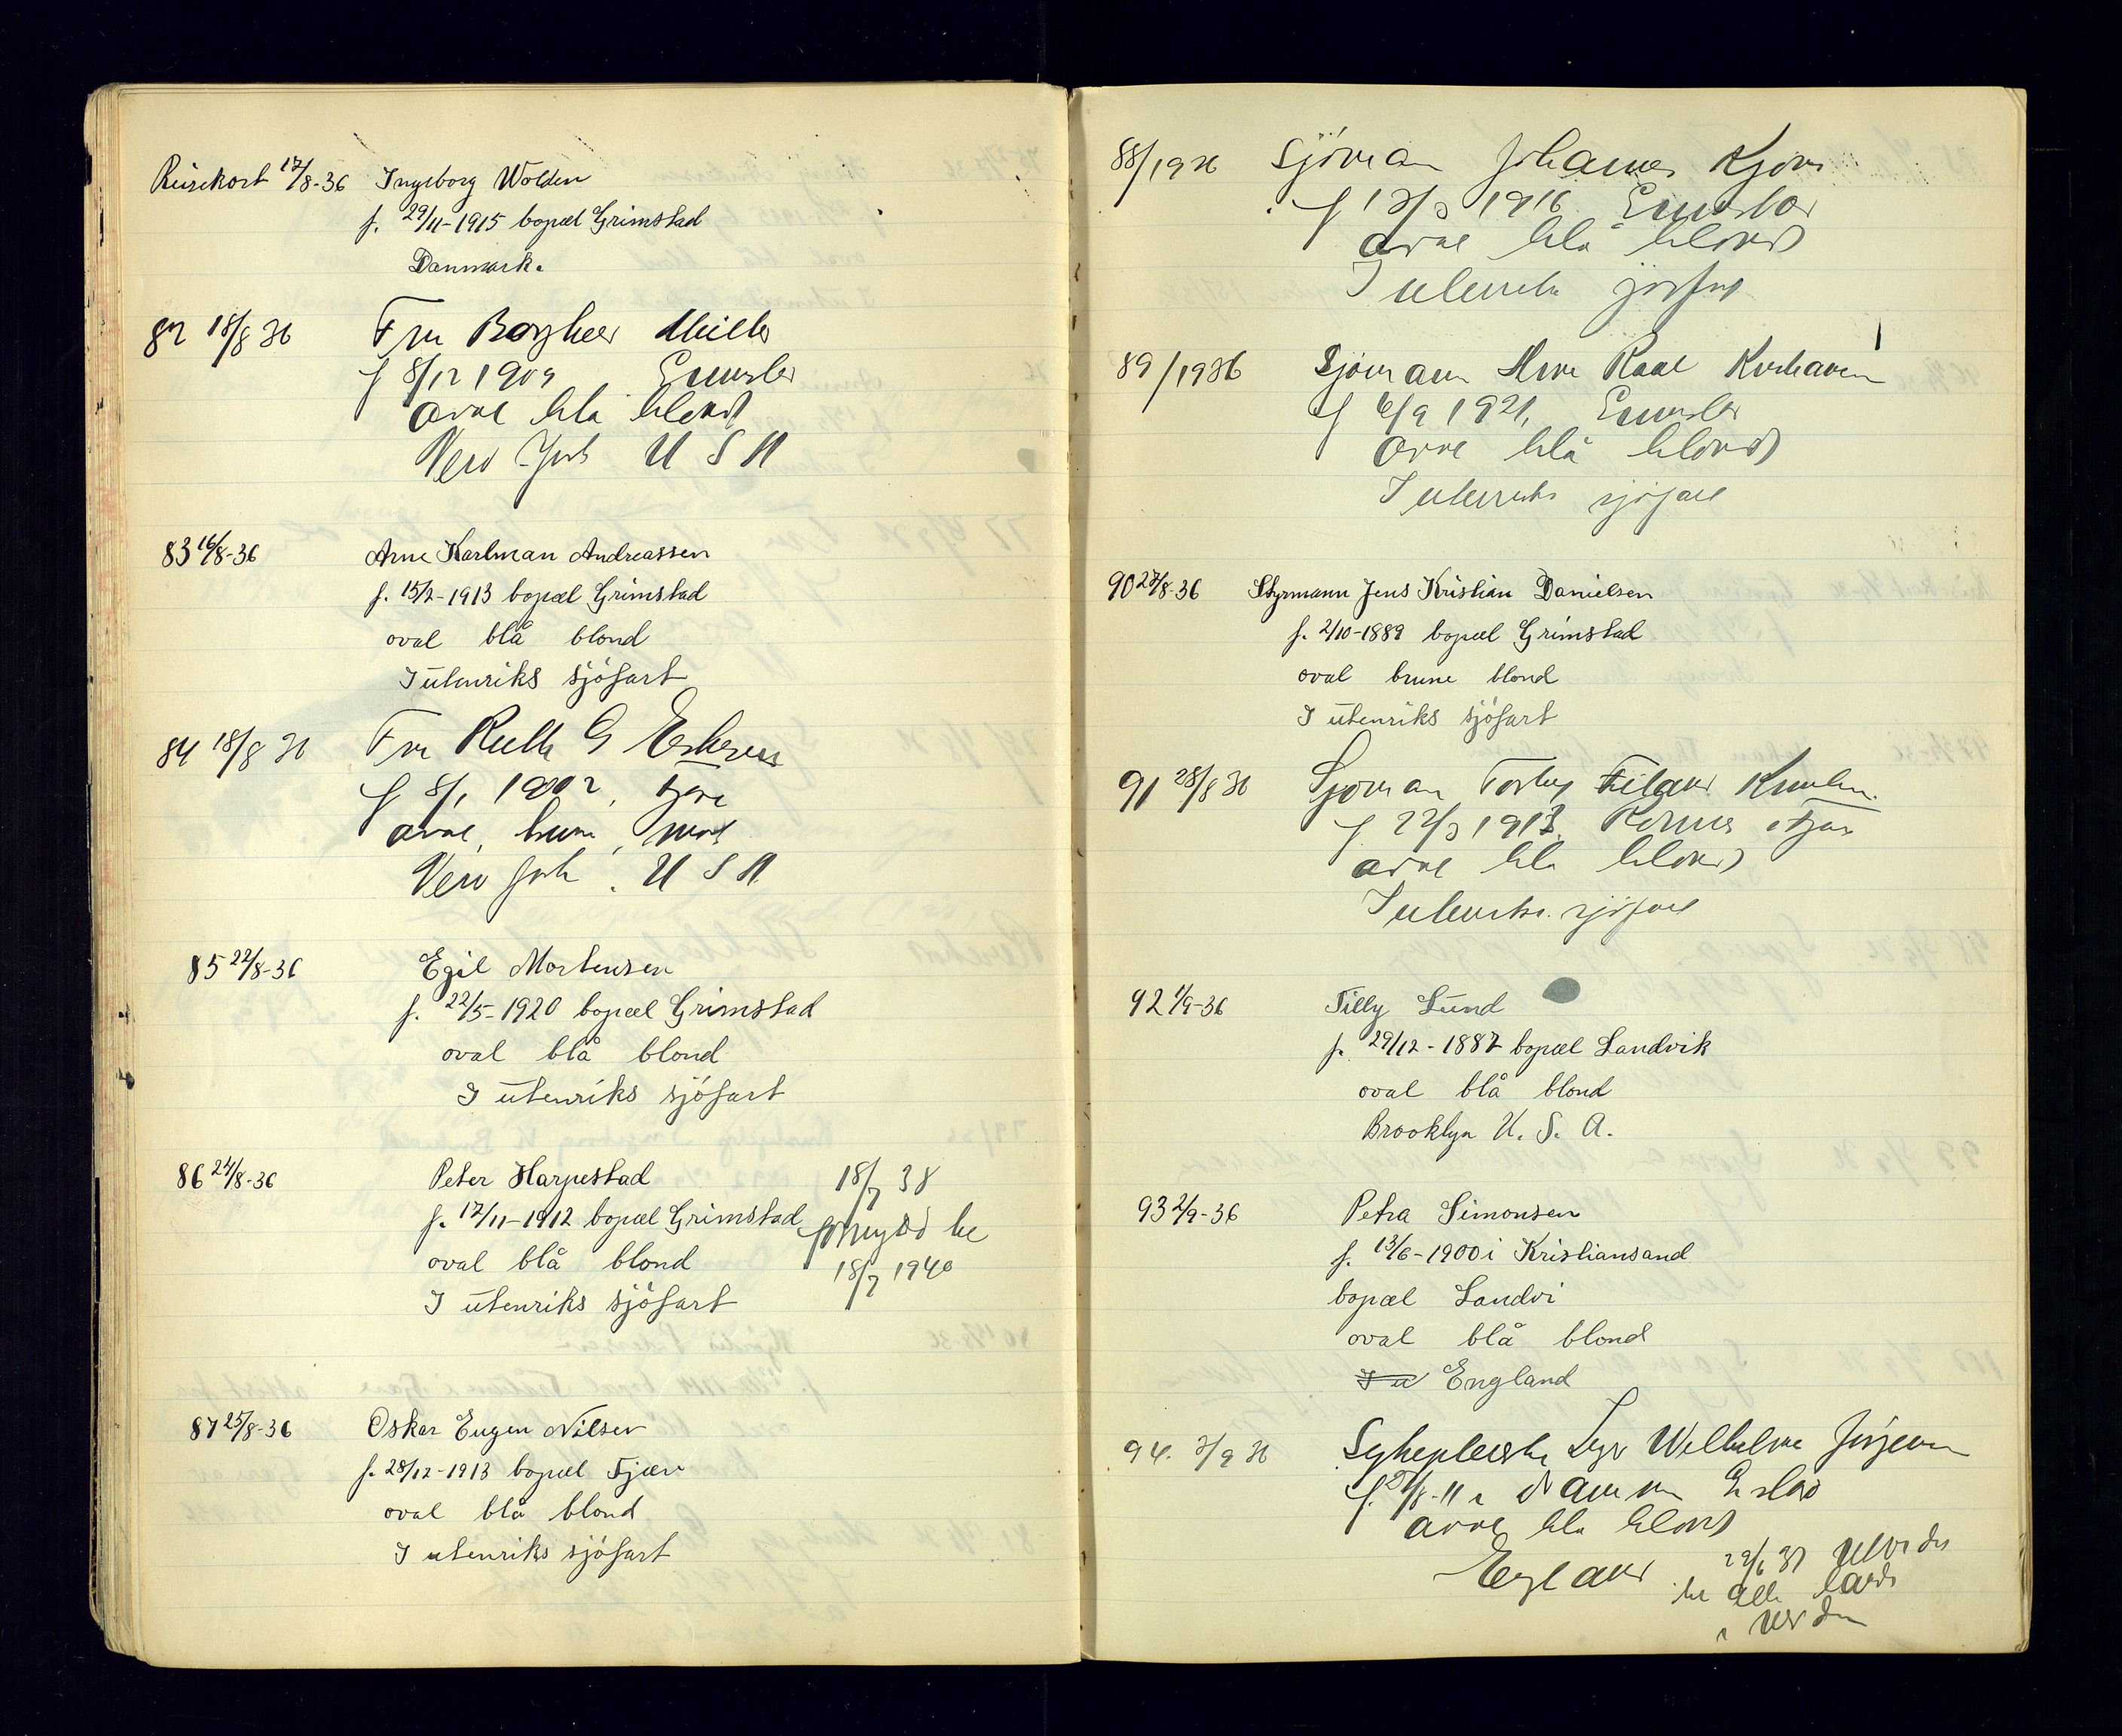 Reisekort 17/8-36 Ingeborg Wolden
f. 29/11-1915 bopæl Grimstad
Danmark.
82 18/8 36 Fru
f 8/12 1909 Grimstad
oval blå blond
New York U S A
83 16/8-36 Arne Karlman Andreassen
f. 15/2-1913 bopæl Grimstad
oval blå blond
I utenriks sjöfart
84 18/8 36 Fru Ruth G
f 8/1 1902, Fjære
oval, brun, mørk
New York. U S A
85 22/8-36 Egil Mortensen
f. 22/5-1920 bopæl Grimstad
oval blå blond
I utenriks sjöfart
86 24/8-36 Peter Harpestad
f. 17/11-1912 bopæl Grimstad
oval blå blond
I utenriks sjöfart
18/7 38
fornyet til
18/7 1940
87 25/8-36 Oskar Eugen Nilsen
f. 28/12-1913 bopæl Fjære
oval blå blond
I utenriks sjöfart
88/1936 Sjöman Johannes
1916 Grimstad
oval blå blond
I utenriks sjöfart
89/1936 Sjöman Roal
f 6/9 1921, Grimstad
oval blå blond
I utenriks sjöfart
90 27/8-36 Styrmann Jens Kristian Danielsen
f. 2/10-1889 bopæl Grimstad
oval brune blond
I utenriks sjöfart
91 28/8 36 Sjöman Knutsen.
f 22/3 1913. i Fjære
oval blå blond
I utenriks. sjöfart
92 1/9-36 Tilly Lund
f. 29/12-1887 bopæl Landvik
oval blå blond
Brooklyn U. S. A.
93 2/9-36 Petra Simonsen
f. 13/6-1900 i Kristiansand
bopæl Landvi
oval blå blond
I u England
94. 3/9 36 Sykepleierske
oval blå blond
England
utvidet
til alle land
i verden